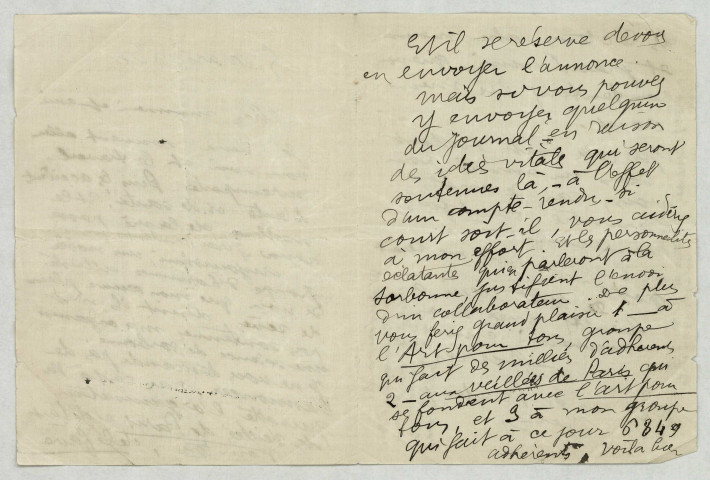 Et il se réserve de vous
en envoyer l'annonce.
mais si vous pouvez
y envoyer quelqu'un
du journal en raison
des idées vitales qui seront
soutenues là - à l'effet
d'un compte-rendu - si
court soit-il, vous aiderez
à mon effort. Et les personnalités
éclatantes qui parleront à la
Sorbonne justifient l'envoi
d'un collaborateur. De plus
vous ferez grand plaisir 1 - à
l'Art pour tous, groupe
qui fait des milliers d'adhérents
2 - aux veillées de Paris qui
se fondent avec l'art pour
tous, et 3 à mon groupe
qui fait à ce jour 6849
adhérents. Voilà